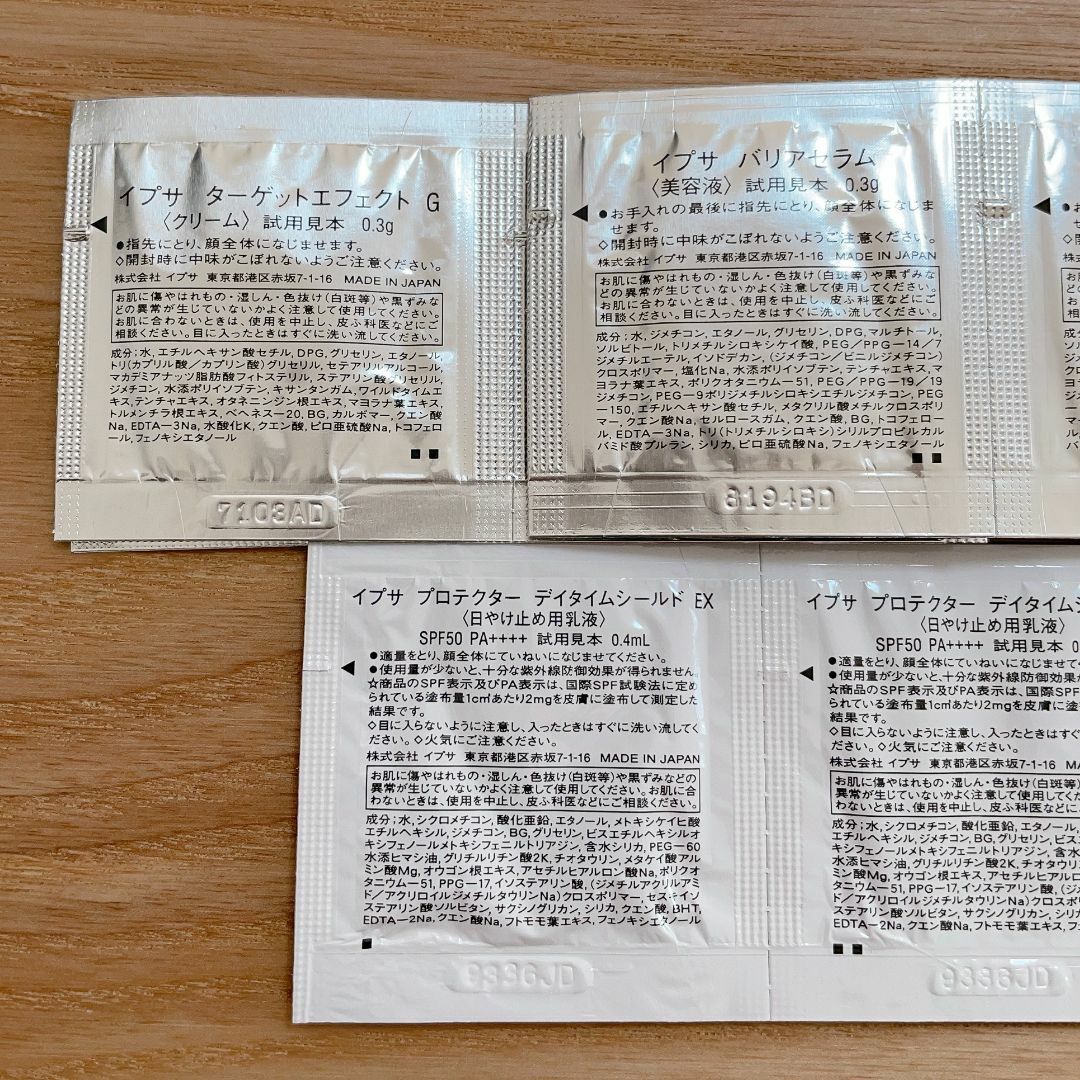 イプサ ターゲットエフェクト G
〈クリーム〉試用見本 0.3g
●指先にとり、顔全体になじませます。
◇開封時に中味がこぼれないようご注意ください。
株式会社 イプサ 東京都港区赤坂7-1-16 MADE IN JAPAN
お肌に傷やはれもの・湿しん・色抜け(白斑等)や黒ずみな
どの異常が生じていないかよく注意して使用してください。
お肌に合わないときは、使用を中止し、皮ふ科医などにご
相談ください。目に入ったときはすぐに洗い流してください。
成分;水,エチルヘキサン酸セチル,DPG,グリセリン,エタノール,
トリ(カプリル酸/カプリン酸)グリセリル,セテアリルアルコール,
マカデミアナッツ脂肪酸フィトステリル,ステアリン酸グリセリル,
ジメチコン,水添ポリイソブテン,キサンタンガム,ワイルドタイムエ
キス,テンチャエキス,オタネニンジン根エキス,マヨラナ葉エキス,
トルメンチラ根エキス,ベヘネス-20,BG,カルボマー,クエン酸
Na,EDTA-3Na,水酸化K,クエン酸,ピロ亜硫酸Na,トコフェロ
ール,フェノキシエタノール
7103AD
イプサ バリアセラム
〈美容液〉試用見本 0.3g
●お手入れの最後に指先にとり、顔全体になじま
せます。
◇開封時に中味がこぼれないようご注意ください。
株式会社 イプサ 東京都港区赤坂7-1-16 MADE IN JAPAN
お肌に傷やはれもの・湿しん・色抜け(白斑等)や黒ずみな
どの異常が生じていないかよく注意して使用してください。
お肌に合わないときは、使用を中止し、皮ふ科医などにご
相談ください。目に入ったときはすぐに洗い流してください。
成分;水,ジメチコン,エタノール,グリセリン,DPG,マルチトール,
ソルビトール,トリメチルシロキシケイ酸,PEG/PPG-14/7
ジメチルエーテル,イソドデカン,(ジメチコン/ビニルジメチコン)
クロスポリマー,塩化Na,水添ポリイソブテン,テンチャエキス,マ
ヨラナ葉エキス,ポリクオタニウム-51,PEG/PPG-19/19
ジメチコン,PEG-9ポリジメチルシロキシエチルジメチコン,PEG
-150,エチルヘキサン酸セチル,メタクリル酸メチルクロスポリ
マー,クエン酸Na,セルロースガム,クエン酸,BG,トコフェロー
ル,EDTA-3Na,トリ(トリメチルシロキシ)シリルプロピルカル
バミド酸プルラン,シリカ,ピロ亜硫酸Na,フェノキシエタノール
8194BD
イプサ プロテクター デイタイムシールド EX
〈日やけ止め用乳液〉
SPF50 PA++++ 試用見本 0.4mL
●適量をとり、顔全体にていねいになじませてください。
●使用量が少ないと、十分な紫外線防御効果が得られません。
☆商品のSPF表示及びPA表示は、国際SPF試験法に定め
られている塗布量1c㎡あたり2mgを皮膚に塗布して測定した
結果です。
◇目に入らないように注意し、入ったときはすぐに洗い流してく
ださい。◇火気にご注意ください。
株式会社 イプサ 東京都港区赤坂7-1-16 MADE IN JAPAN
お肌に傷やはれもの・湿しん・色抜け(白斑等)や黒ずみなどの
異常が生じていないかよく注意して使用してください。お肌に合
わないときは、使用を中止し、皮ふ科医などにご相談ください。
成分;水,シクロメチコン,酸化亜鉛,エタノール,メトキシケイヒ酸
エチルヘキシル,ジメチコン,BG,グリセリン,ビスエチルヘキシルオ
キシフェノールメトキシフェニルトリアジン,含水シリカ,PEG-60
水添ヒマシ油,グリチルリチン酸2K,チオタウリン,メタケイ酸アル
ミン酸Mg,オウゴン根エキス,アセチルヒアルロン酸Na,ポリクオ
タニウム-51,PPG-17,イソステアリン酸,(ジメチルアクリルアミ
ド/アクリロイルジメチルタウリンNa)クロスポリマー,セスキイソ
ステアリン酸ソルビタン,サクシノグリカン,シリカ,クエン酸,BHT,
EDTA-2Na,クエン酸Na,フトモモ葉エキス,フェノキシエタノール
9336JD
イプサ プロテクター デイタイムシ
〈日やけ止め用乳液〉
SPF50 PA++++ 試用見本 0.
●適量をとり、顔全体にていねいになじませて
●使用量が少ないと、十分な紫外線防御効果が
☆商品のSPF表示及びPA表示は、国際SPF
られている塗布量1c㎡あたり2mgを皮膚に塗
結果です。
◇目に入らないように注意し、入ったときはすぐ
ださい。◇火気にご注意ください。
株式会社 イプサ 東京都港区赤坂7-1-16 MA
お肌に傷やはれもの・湿しん・色抜け(白斑等)
異常が生じていないかよく注意して使用して
わないときは、使用を中止し、皮ふ科医などに
成分;水,シクロメチコン,酸化亜鉛,エタノール,
エチルヘキシル,ジメチコン,BG,グリセリン,ビス
キシフェノールメトキシフェニルトリアジン,含水
水添ヒマシ油,グリチルリチン酸2K,チオタウリン
ミン酸Mg,オウゴン根エキス,アセチルヒアルロン
タニウム-51,PPG-17,イソステアリン酸,(ジメ
ド/アクリロイルジメチルタウリンNa)クロスポリ
ステアリン酸ソルビタン,サクシノグリカン,シリカ
EDTA-2Na,クエン酸Na,フトモモ葉エキス,フェ
9336JD